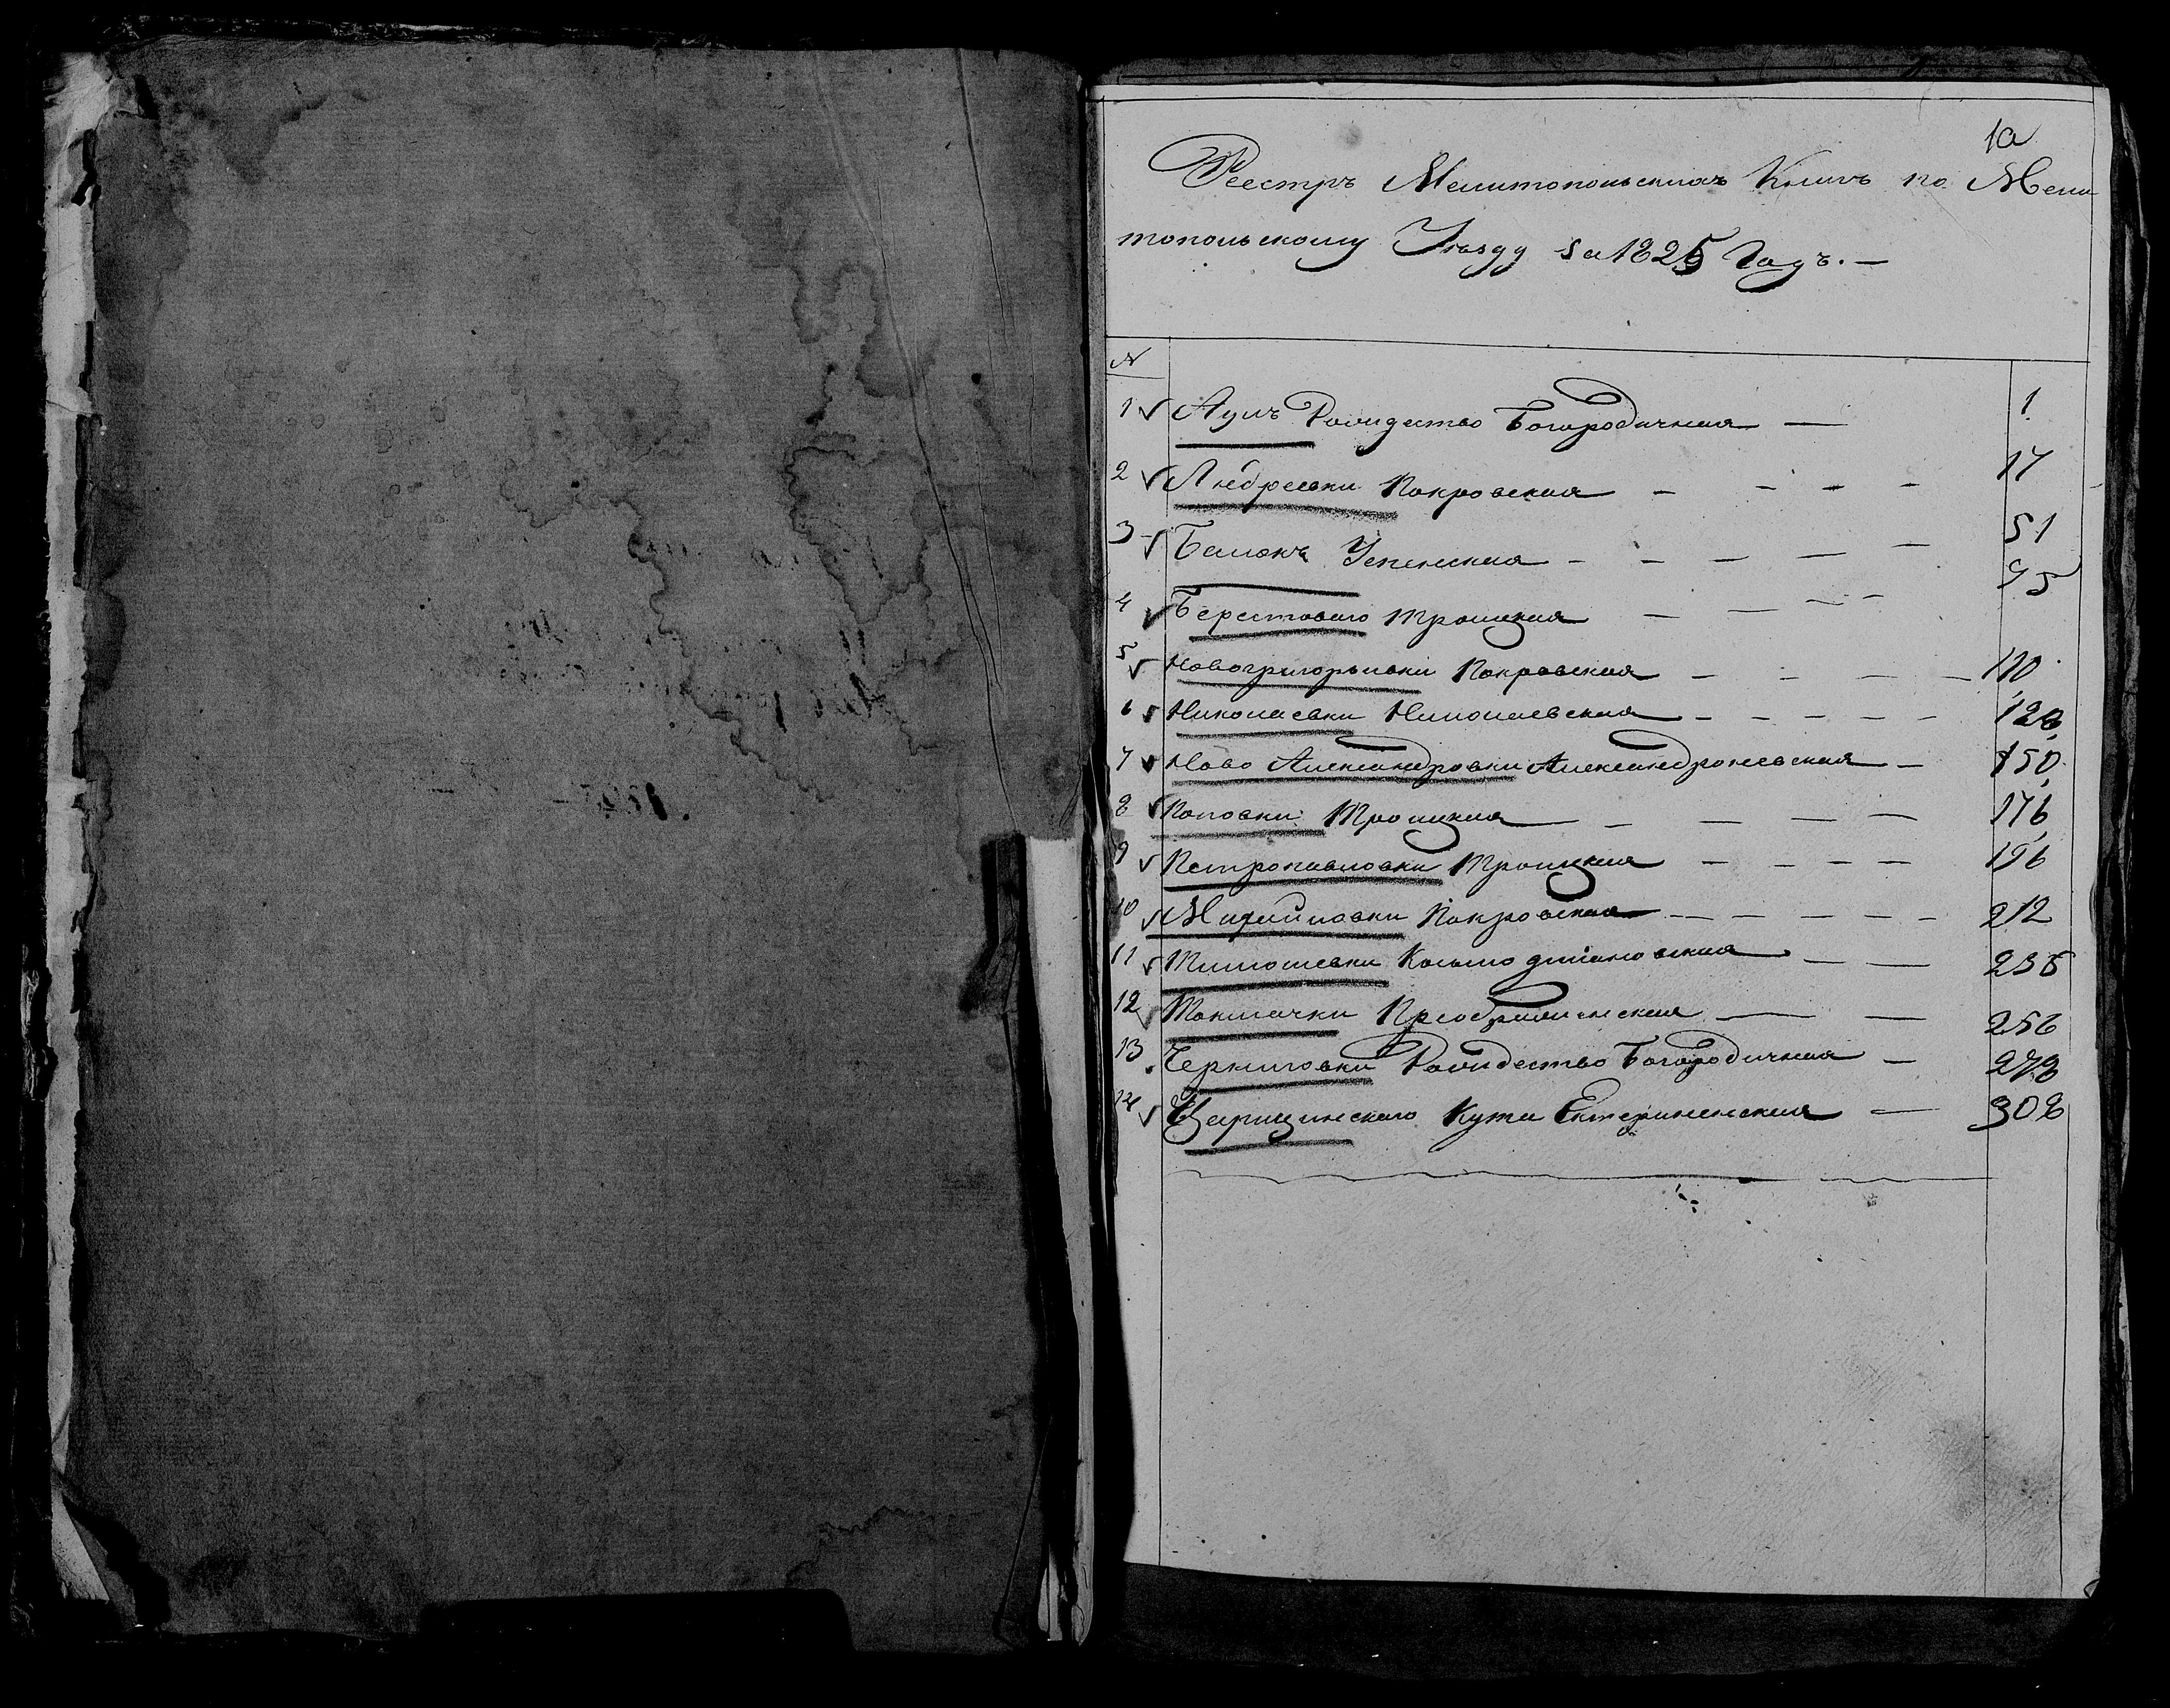 1а
Реестръ Мелитопольскихъ Книгъ по Мели
топольскому Уѣзду за 1825 Годъ. —
N
1 Аулъ Рождество Богородичная — 1
2 Андреевки Покровская — — — — 17
3 Балокъ Успенская — — — — — 51
4 Берестоваго Троицкая — — — — 75
5 Новогригорьивки Покровская — — — — 110
6 Николаевки Николаевская — — — — — 128
7 Ново Александровки Александроневская — 150
8 Поповки Троицкая — — — — 176
9 Петропавловки Троицкая — — — — 196
10 Михайловки Покровская — — — — — 212
11 Тимошевки Космодмiановская — — 235
12 Токмачки Преображенская — — 256
13 Черниговки Рождество Богородичная — 278
14 Царицинскаго Кута Екатерининская — 308